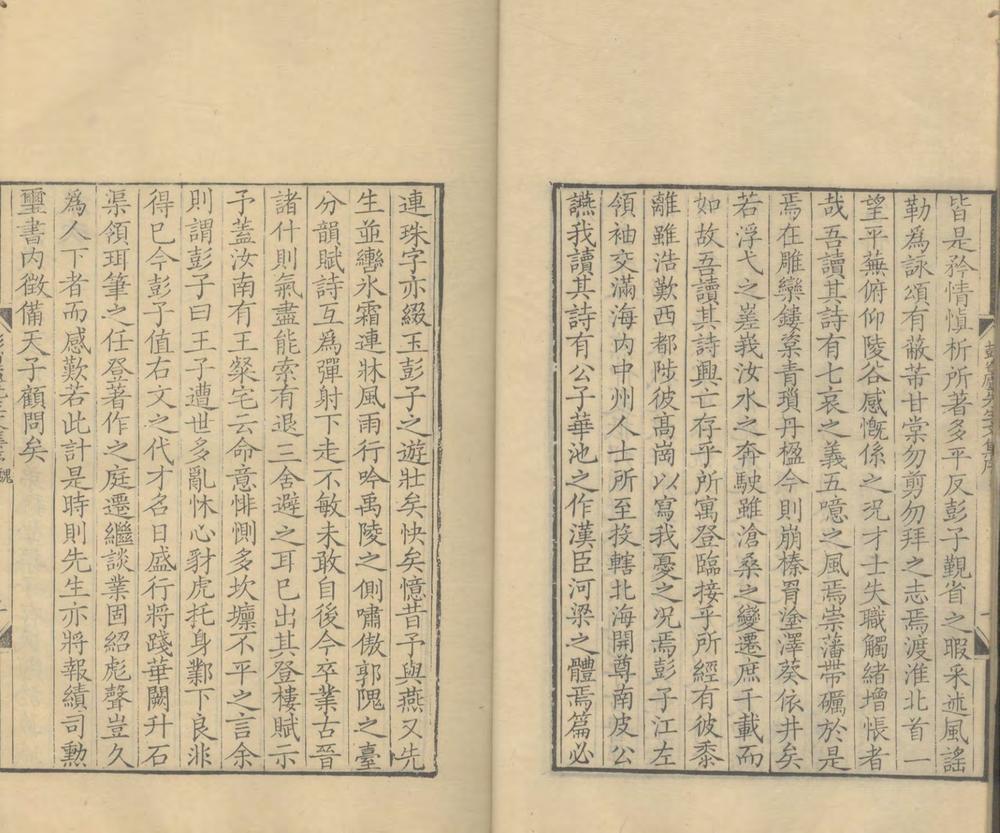 皆是矜情慎析所著多平反彭子覲省之暇采迹風謠
勒爲詠頌有蔽芾甘棠勿剪勿拜之志焉渡淮北首一
望平蕪俯仰陵谷感慨係之況才士失職觸緒增悵者
哉吾讀其詩有七哀之義五噫之風焉崇藩帶礪於是
焉在雕欒鏤槼青瑣丹楹今則崩榛胷塗澤葵依井矣
若浮弋之嵳峩汝水之奔駛雖滄桑之變遷庶千載而
如故吾讀其詩興亡存乎所寓登臨接乎所經有彼黍
離雖浩歎西都陟彼高崗以寫我憂之況焉彭子江左
領袖交滿海内中州人士所至投轄北海開尊南皮公
讌我讀其詩有公子華池之作漢臣河梁之體焉篇必
連珠字亦綴玉彭子之遊壯矣快矣憶昔予與燕又先
生並轡氷霜連牀風雨行吟禹陵之側嘯傲郭隗之臺
分韻賦詩互爲彈射下走不敏未敢自後今卒業古晉
諸什則氣盡能索有退三舍避之耳巳出其登樓賦示
予蓋汝南有王粲宅云命意悱惻多坎壈不平之言余
則謂彭子曰王子遭世多亂怵心豺虎托身鄴下良非
得巳今彭子值右文之代才名日盛行將踐華闕升石
渠領珥筆之任登著作之庭遷繼談業固紹彪聲豈久
爲人下者而感歎若此計是時則先生亦將報績司勲
璽書内徵備天子顧問矣